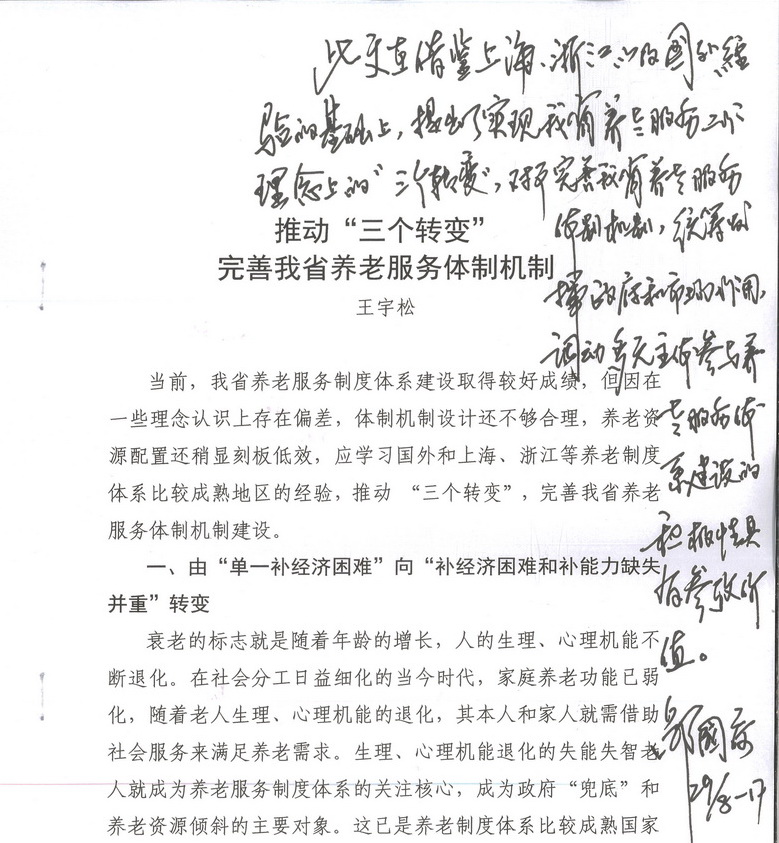 此文在借鉴上海、浙江以及国外经
验的基础上，提出了实现我省养老服务工作
理念上的“三个转变”，对于完善我省养老服务
体制机制，统筹发
挥政府和市场的作用，
调动多元主体参与养
老服务体
系建设的
积极性具
有参考价
值。
29/8-17
推动“三个转变”
完善我省养老服务体制机制
王宇松
当前，我省养老服务制度体系建设取得较好成绩，但因在
一些理念认识上存在偏差，体制机制设计还不够合理，养老资
源配置还稍显刻板低效，应学习国外和上海、浙江等养老制度
体系比较成熟地区的经验，推动 “三个转变”，完善我省养老
服务体制机制建设。
一、由“单一补经济困难”向“补经济困难和补能力缺失
并重”转变
衰老的标志就是随着年龄的增长，人的生理、心理机能不
断退化。在社会分工日益细化的当今时代，家庭养老功能已弱
化，随着老人生理、心理机能的退化，其本人和家人就需借助
社会服务来满足养老需求。生理、心理机能退化的失能失智老
人就成为养老服务制度体系的关注核心，成为政府“兜底”和
养老资源倾斜的主要对象。这已是养老制度体系比较成熟国家